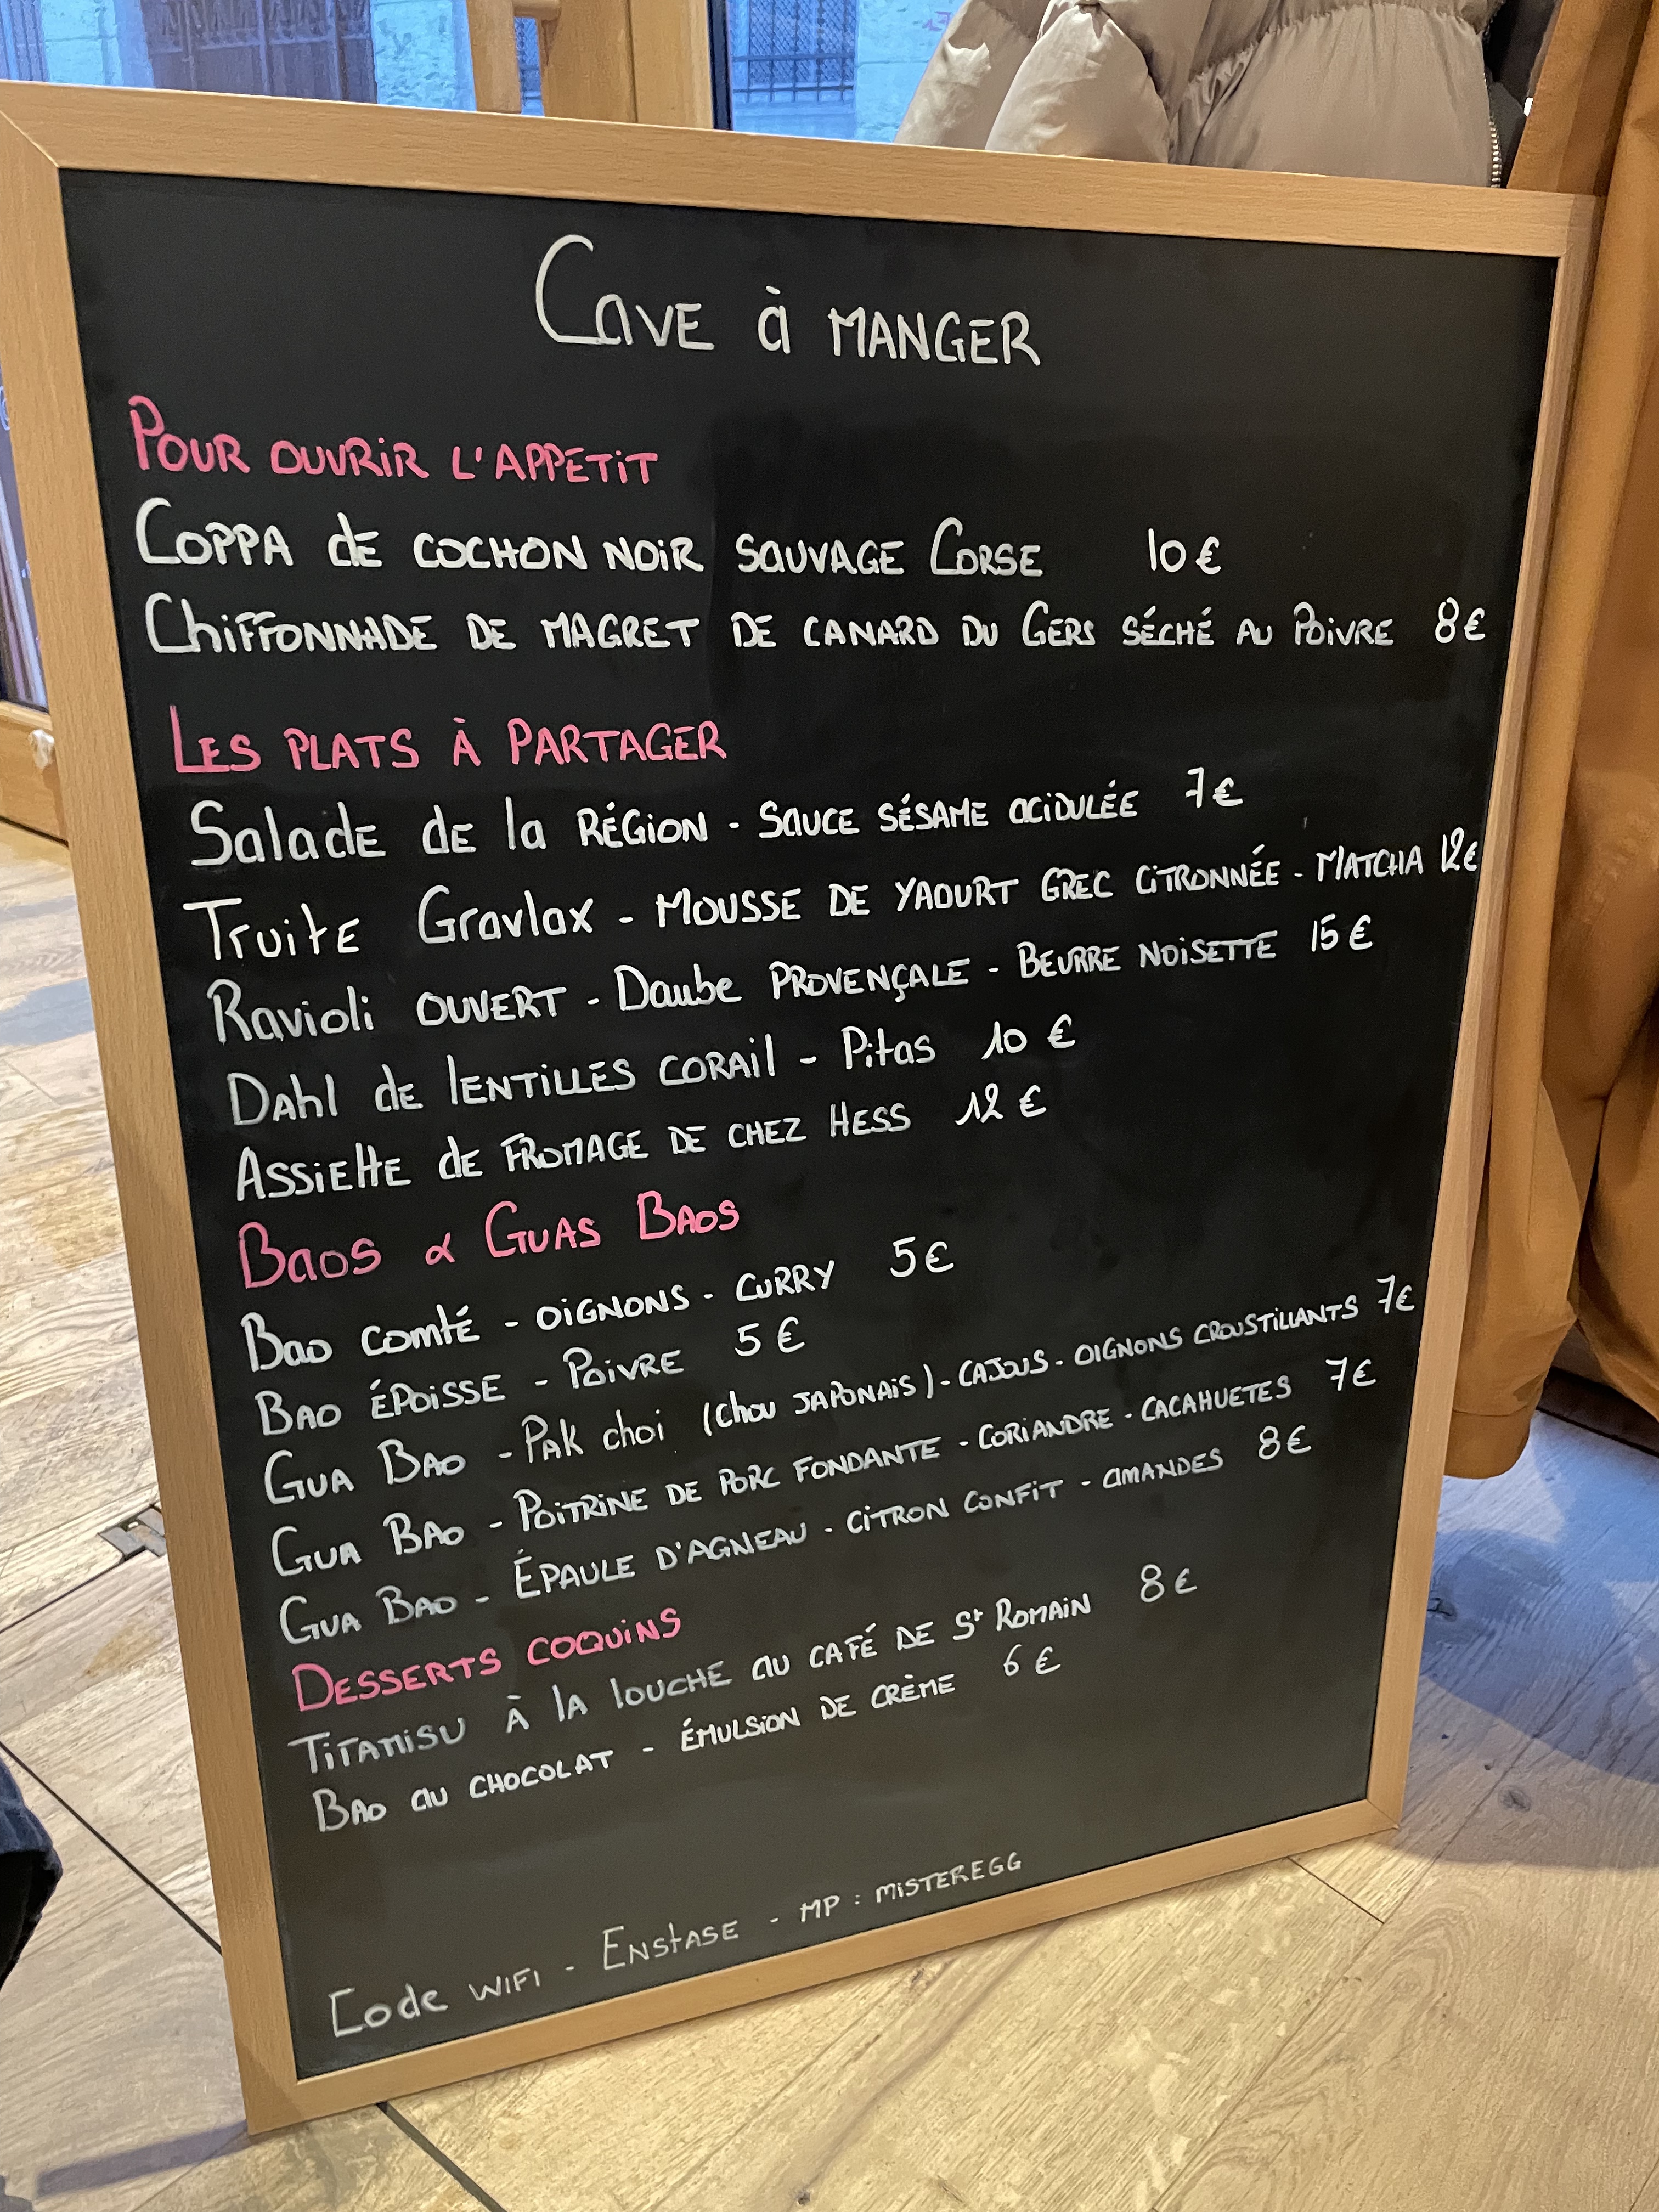 Cave à manger
Pour ouvrir l'appetit
Coppa de cochon noir sauvage Corse 10€
Chiffonnade de magret de canard du Gers séché au Poivre 8€
Les plats à partager
Salade de la région - Sauce sésame acidulée 7€
Truite Gravlax - Mousse de yaourt grec citronnée - Matcha 12€
Ravioli ouvert - Daube provençale - Beurre noisette 15€
Dahl de lentilles corail - Pitas 10€
Assiette de fromage de chez Hess 12€
Baos & Guas Baos
Bao comté - oignons - curry 5€
Bao époisse - Poivre 5€
Gua Bao - Pak choi (chou japonais) - cajous - oignons croustillants 7€
Gua Bao - Poitrine de porc fondante - coriandre - cacahuetes 7€
Gua Bao - Épaule d'agneau - citron confit - amandes 8€
Desserts coquins
Titamisu à la louche au café de St Romain 8€
Bao au chocolat - émulsion de crème 6€
Code wifi - Enstase - MP : misteregg